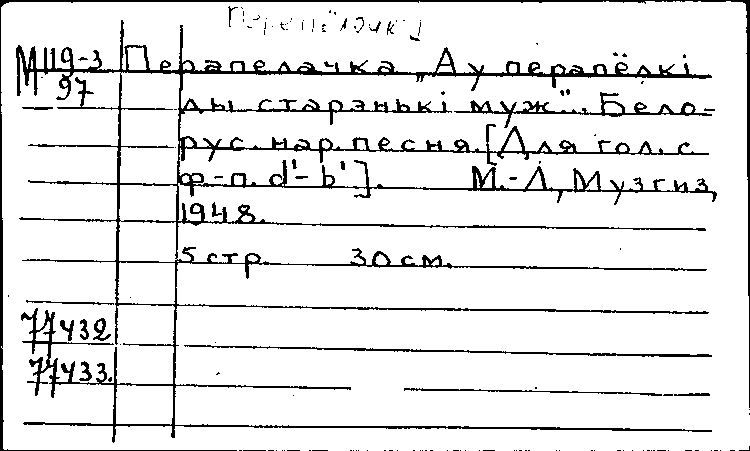 Перепёлочка
М 119-3
97
Перапелачка „А у перапёлкі
ды старэнькі муж". Бело-
рус. нар. песня. [Для гол. с
ф.-п. d'- b']. М.-Л., Музгиз,
1948.
5 стр. 30 см.
77432
77433.